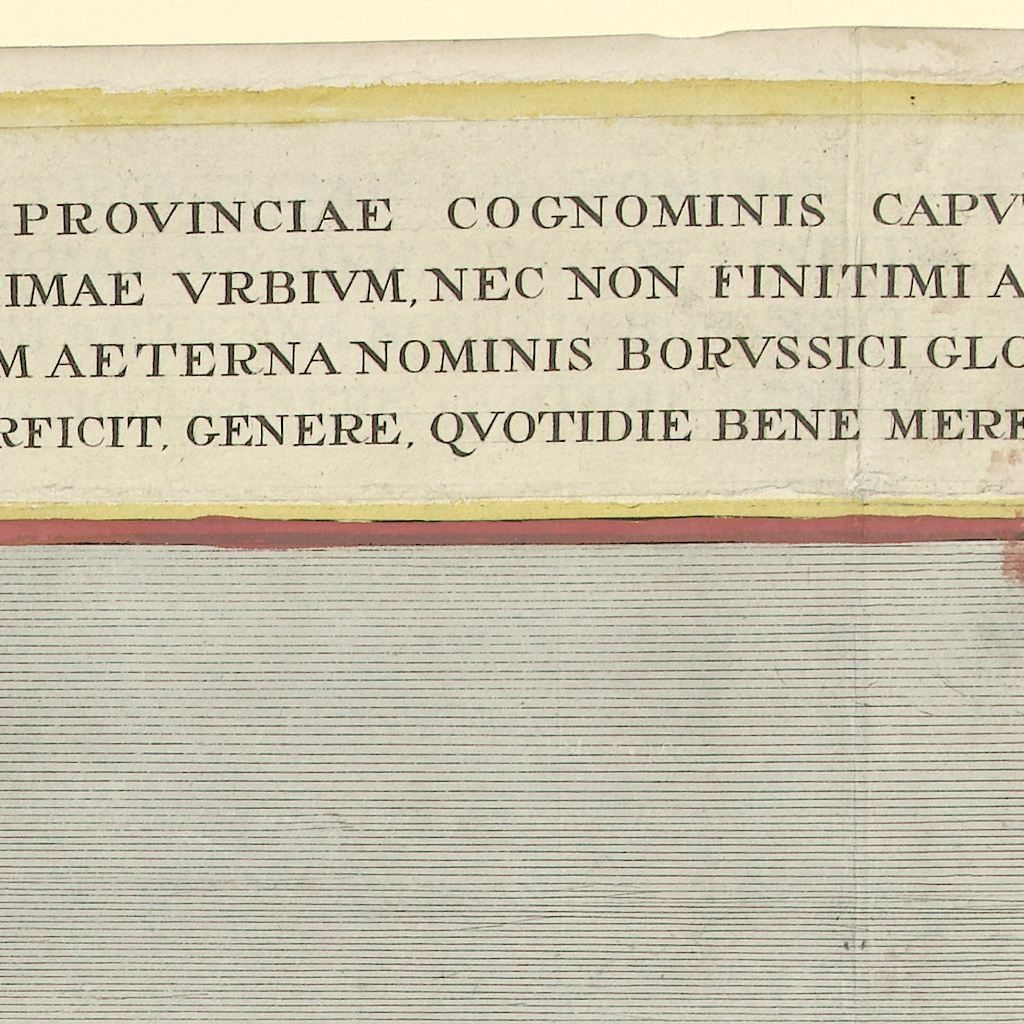 PROVINCIAE COGNOMINIS CAPV
IMAE VRBIVM, NEC NON FINITIMI A
M AETERNA NOMINIS BORVSSICI GLO
RFICIT, GENERE, QVOTIDIE BENE MERE